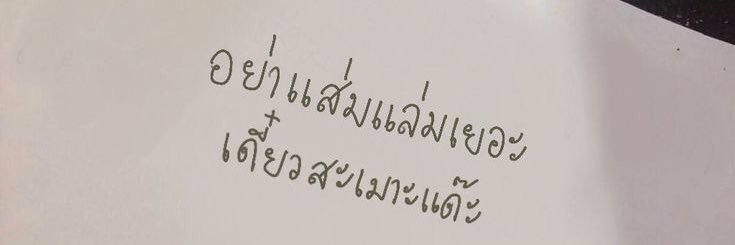 อย่าแส่มแล่มเยอะ
เดี๋ยวสะเมาะแด๊ะ